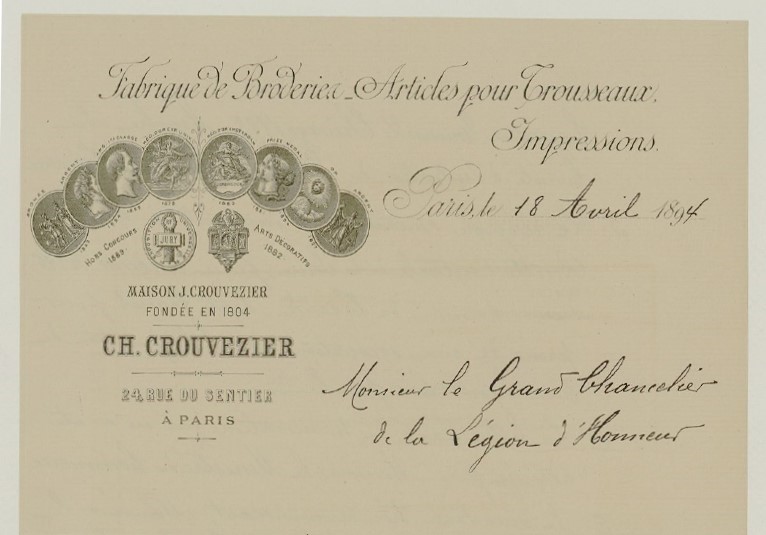 Fabrique de Broderies _ Articles pour Trousseaux.
Impressions.
Paris, le 18 Avril 1894
HORS CONCOURS
1889
EXPOSITION UNIVERSELLE
JURY
ARTS DÉCORATIFS
1882
MAISON J. CROUVEZIER
FONDÉE EN 1804
CH. CROUVEZIER
24, RUE DU SENTIER
À PARIS
Monsieur le Grand Chancelier
de la Légion d'Honneur